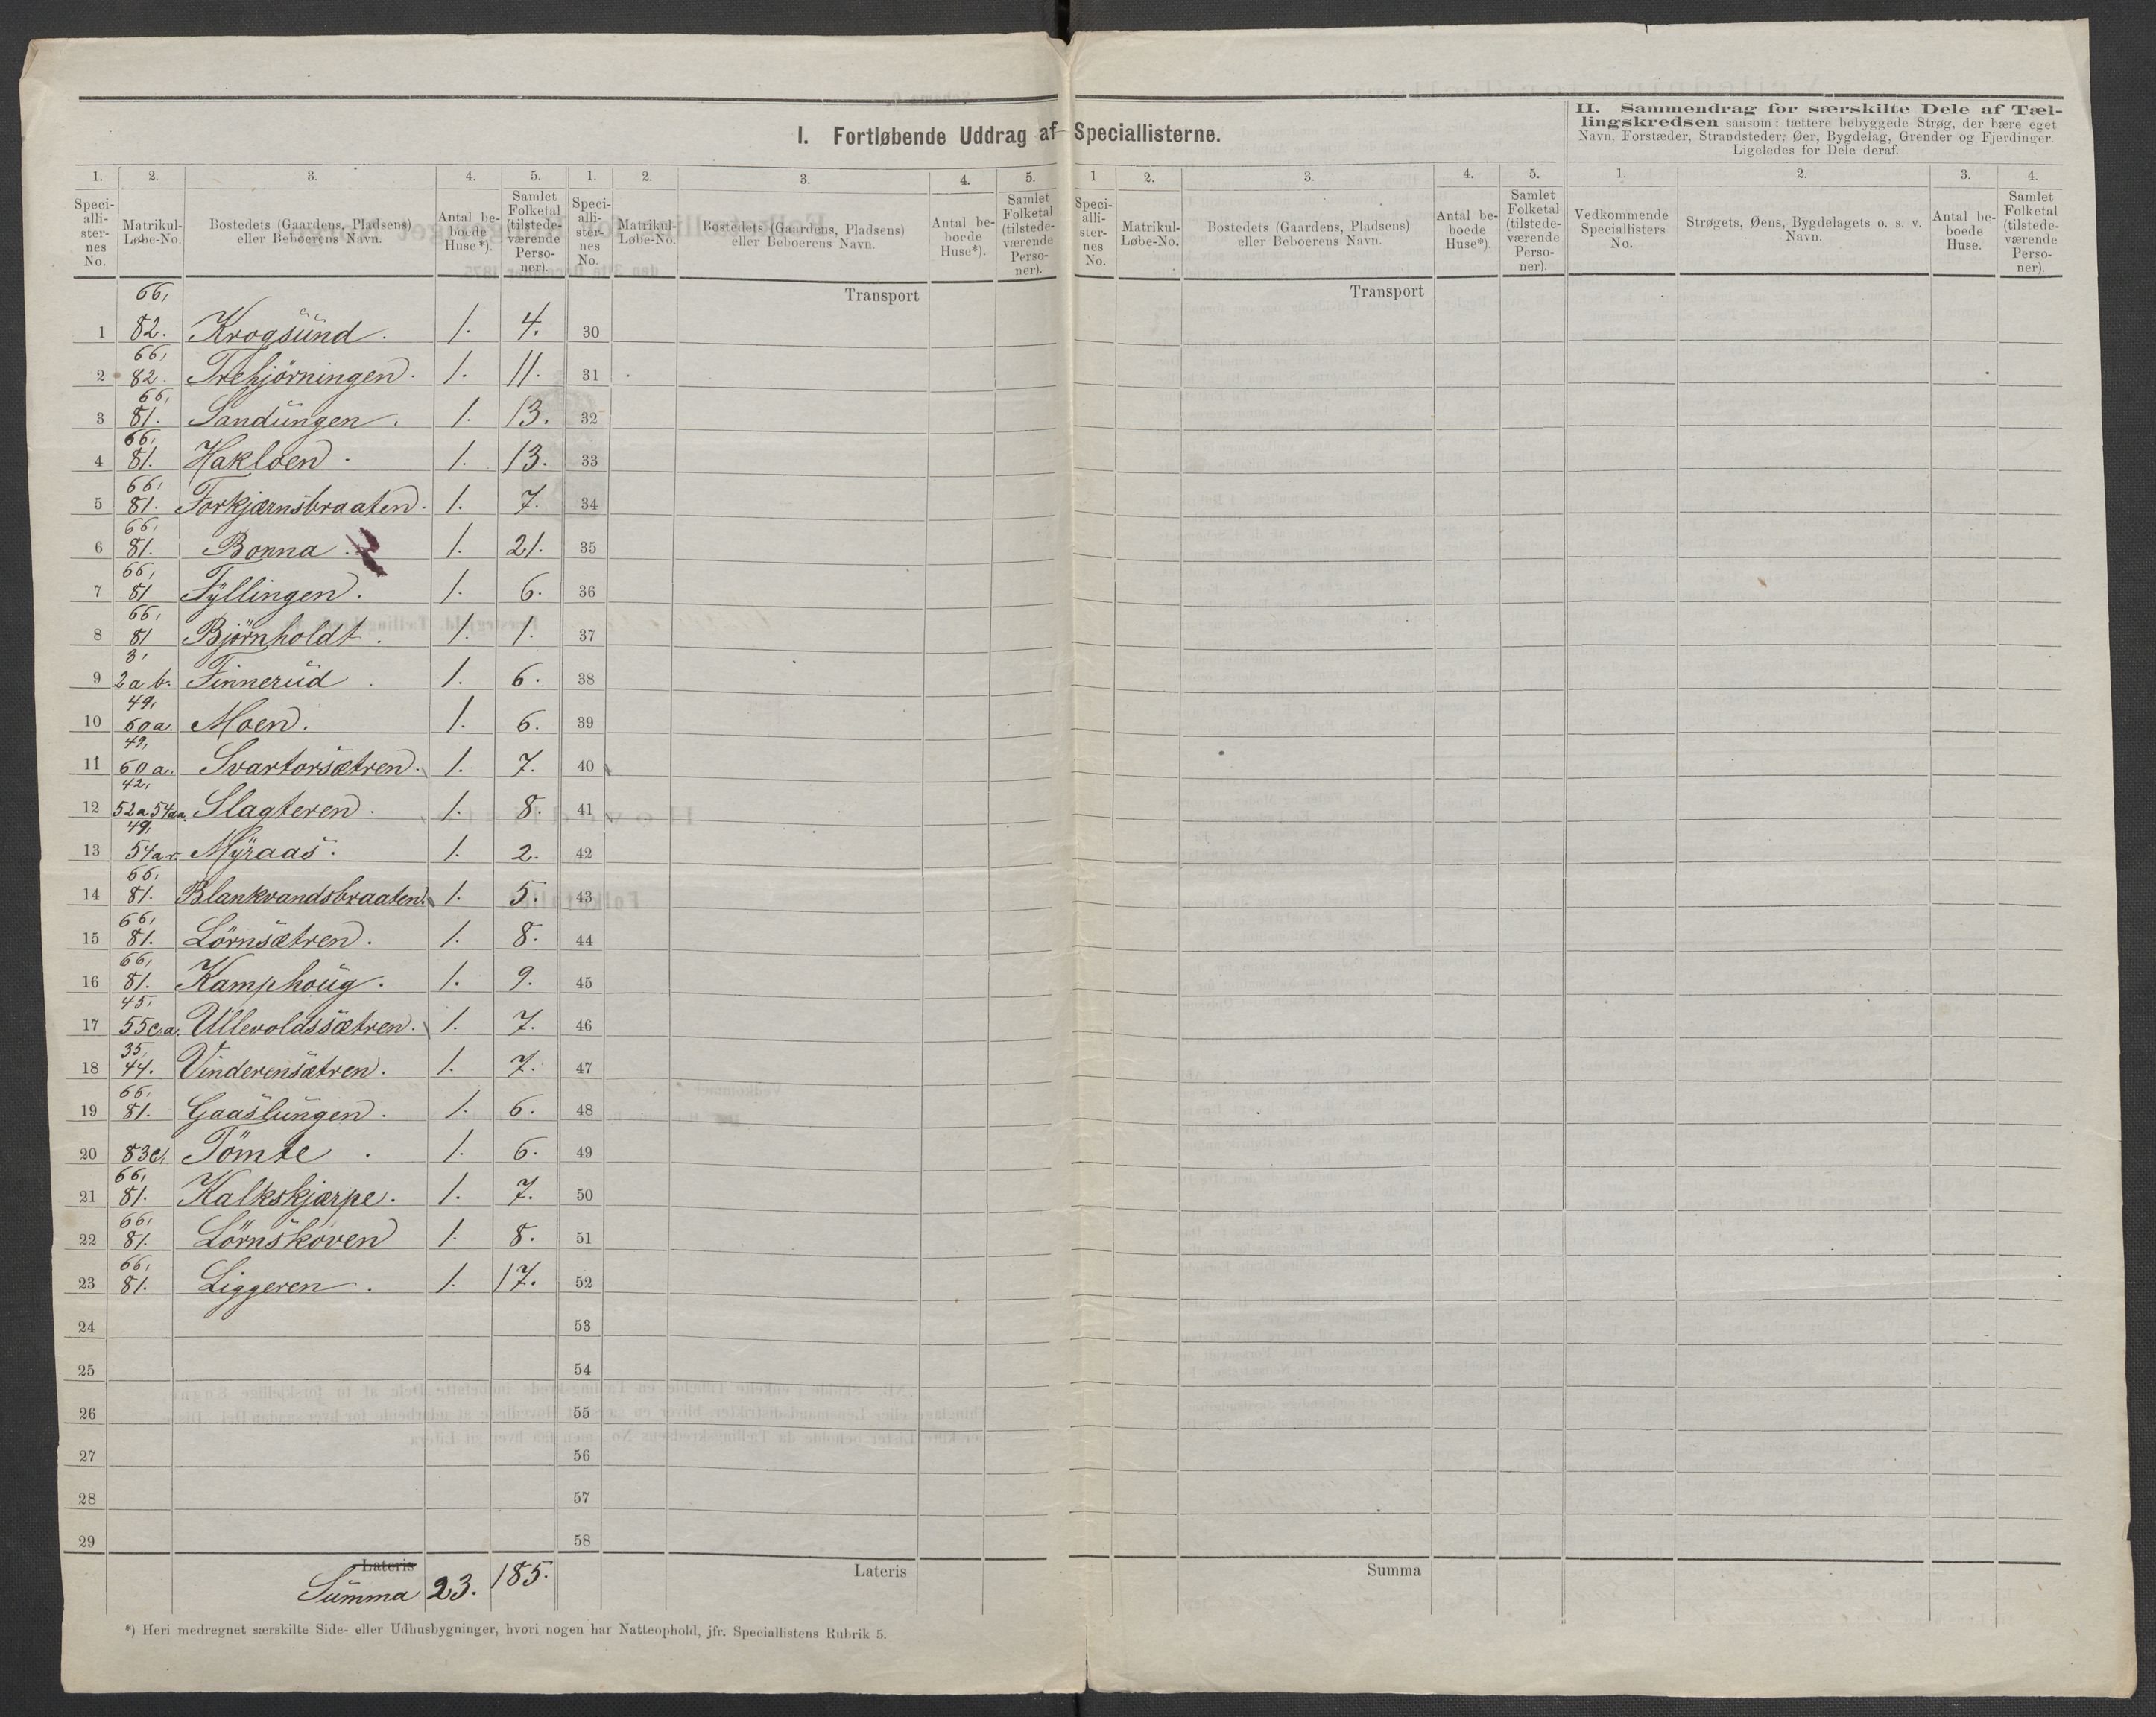 I. Fortløbende Uddrag af Speciallisterne.
II. Sammendrag for særskilte Dele af Tæl-
lingskredsen saasom: tættere bebyggede Strøg, der bære eget
Navn, Forstæder, Strandsteder, Øer, Bygdelag, Grender og Fjerdinger.
Ligeledes for Dele deraf.
1. 2. 3. 4. 5. 1. 2. 3. 4. 5. 1 2. 3. 4. 5. 1. 2. 3. 4.
Speci-alli-ster-nes No. Matrikul-Løbe-No. Bostedets (Gaardens, Pladsens) eller Beboerens Navn. Antal be-boede Huse*). Samlet Folketal (tilstede-værende Perso-ner).
Speci-alli-ster-nes No. Matrikul-Løbe-No. Bostedets (Gaardens, Pladsens) eller Beboerens Navn. Antal be-boede Huse*). Samlet Folketal (tilstede-værende Perso-ner).
Speci-alli-ster-nes No. Matrikul-Løbe-No. Bostedets (Gaardens, Pladsens) eller Beboerens Navn. Antal be-boede Huse*). Samlet Folketal (tilstede-værende Perso-ner).
Vedkommende Speciallisters No. Strøgets, Øens, Bygdelagets o. s. v. Navn. Antal be-boede Huse. Samlet Folketal (tilstede-værende Perso-ner).
Transport Transport
66,
1 82. Krogsund. 1. 4. 30
66,
2 82. Trehjørningen. 1. 11. 31
66,
3 81. Sandungen. 1. 13. 32
66,
4 81. Hakloen. 1. 13. 33
66,
5 81. Forkjærnsbraaten. 1. 7. 34
66,
6 81. Bonna. 1. 21. 35
66,
7 81 Fyllingen. 1. 6. 36
66,
8 81 Bjørnholdt. 1. 1. 37
3,
9 2a b. Finnerud. 1. 6. 38
49,
10 60a. Moen. 1. 6. 39
49,
11 60a. Svartorsætren. 1. 7. 40
42,
12 52a 54aa. Slagteren. 1. 8. 41
49,
13 54ar Myraas. 1. 2. 42
66,
14 81. Blankvandsbraaten. 1. 5. 43
66,
15 81. Lörnsætren. 1. 8. 44
66,
16 81. Kamphoug. 1. 9. 45
45,
17 55ca. Ullevoldssætren. 1. 7. 46
35,
18 44. Vinderensætren. 1. 7. 47
66,
19 81. Gaaslungen. 1. 6. 48
20 83c. Tömte. 1. 6. 49
66,
21 81. Kalkskjærpe. 1. 7. 50
66,
22 81. Lörnskoven 1. 8. 51
66,
23 81. Liggeren. 1. 17. 52
24 53
25 54
26 55
27 56
28 57
29 58
Lateris Lateris Summa
Summa 23. 185.
*) Heri medregnet særskilte Side- eller Udhusbygninger, hvori nogen har Natteophold, jfr. Speciallistens Rubrik 5.